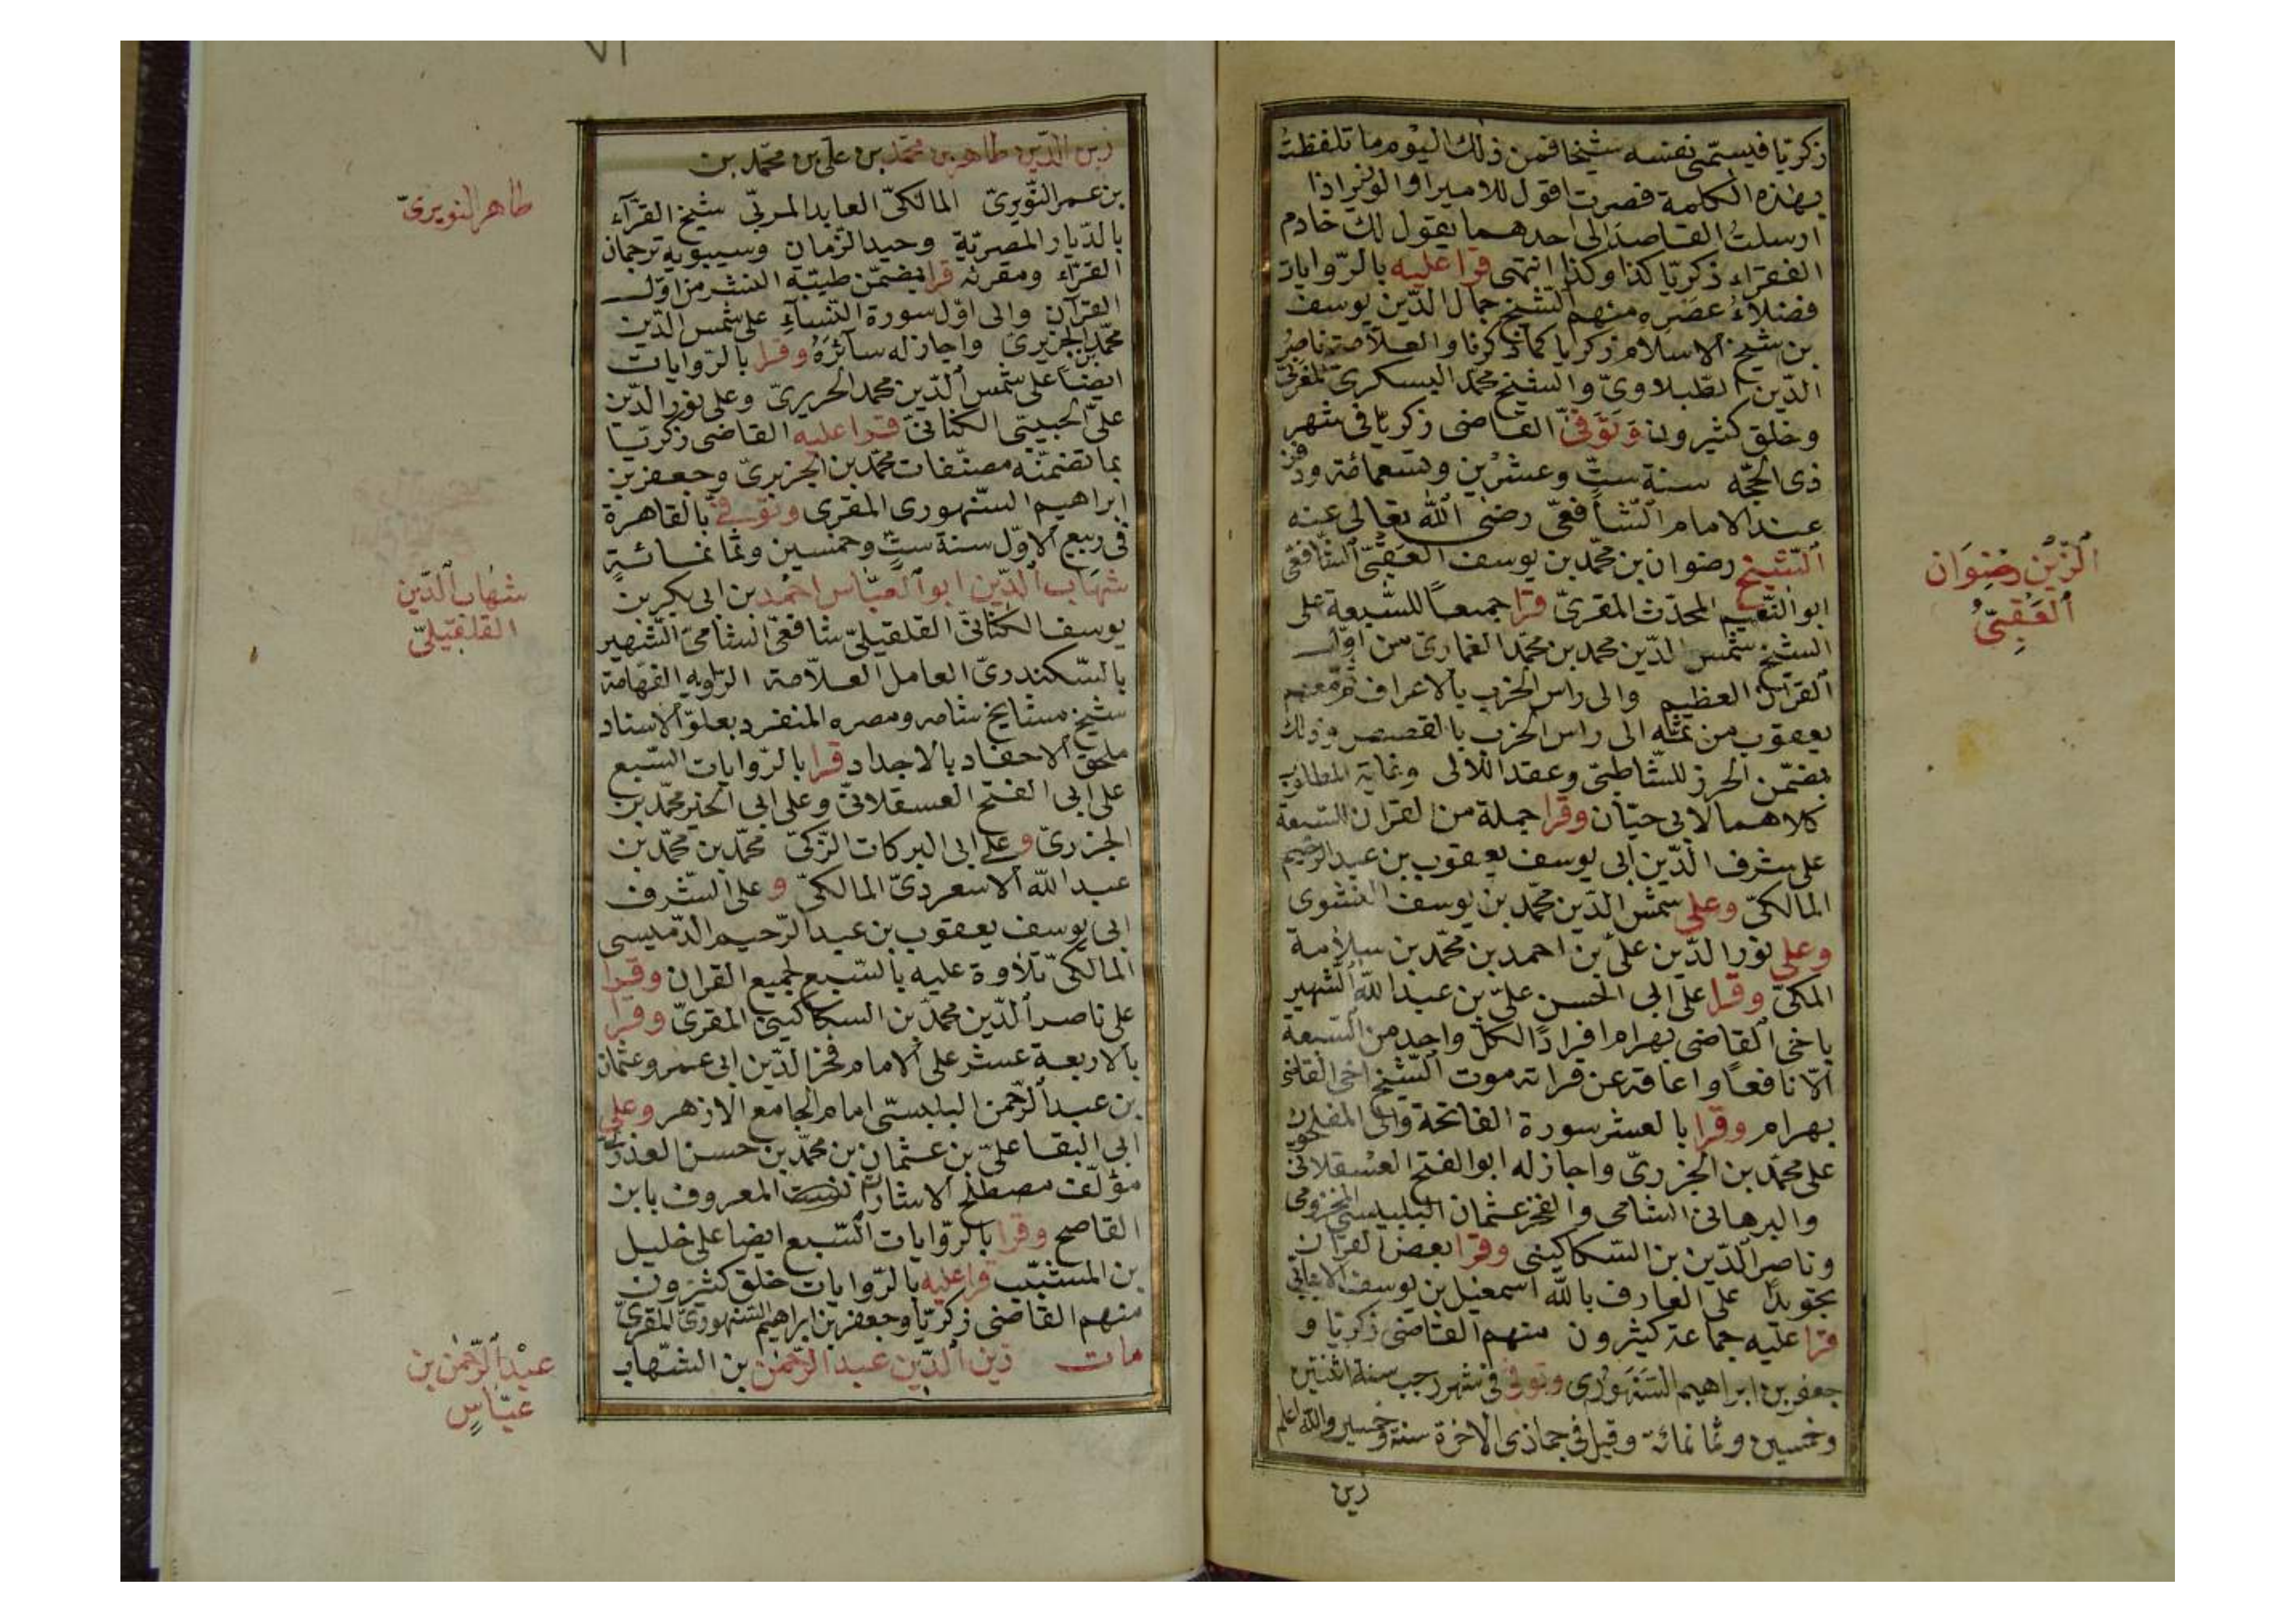 زكريّا فيسمّى نفسه شيخا فمن ذلك اليوم ما تلفظت
بهذه الكلمة فصرت اقول للامير او الوزير اذا
ارسلتُ القاصد الى احدهما يقول لك خادم
الفقراء زكريّا كذا وكذا انتهى قرا عليه بالرّوايات
فضلاءُ عصره منهم الشيخ جمال الدّين يوسف
بن شيخ الاسلام زكريا كما ذكرنا والعلاّمة ناصر
الدّين الطّبلاوىّ والشيخ محمّد البسكرىّ المغربىّ
وخلق كثيرون وَتَوَفىّ القاضى زكريّا فى شهر
ذى الحجّه سنة ستّ وعشرين وتسعمائة ودفن
عند الامام الشّافعىّ رضى الله تعالى عنه
الشّيخ رضوان بن محمّد بن يوسف العقبىّ الشّافعىّ
الزّين رضوَان
العُقبىّ
ابو النّعيم المحدّث المقرىّ قرا جميعاً للسّبعة على
الشيخ شمس الدّين محمد بن محمّد الغمارىّ من اوّل
القرآن العظيم والى راس الحزب بالاعراف ثمّ معهم
يعقوب من ثمّه الى راس الحزب بالقصص وذلك
بضمّن الحرز للشّاطبىّ وعقد اللآلى وغاية المطلوب
كلاهما لابى حيّان وقرا جملة من القران للسّبعة
على شرف الدّين ابى يوسف يعقوب بن عبد الرّحيم
المالكىّ وعلى شمس الدّين محمّد بن يوسف النشوى
وعلى نور الدّين علىّ بن احمد بن محمّد بن سلامة
المكىّ وقرا على ابى الحسن علىّ بن عبد الله الشّهير
باخى القاضى بهرام افرادًا لكلّ واحد من السّبعة
الاّ نافعًا واعاقه عن قراته موت الشّيخ اخى القاضى
بهرام وقرا بالعشر سورة الفاتحة والى المفلحون
على محمّد بن الجزرىّ واجاز له ابو الفتح العسقلانىّ
والبرهانىّ الشامى والفخر عثمان البلبيسىّ المخزومى
وناصر الدّين بن السّكاكينى وقرا بعض القران
تجويدًا على العارف بالله اسمعيل بن يوسف الانبابىّ
قرا عليه جماعة كثيرون منهم القاضى زكريّا و
جعفر بن ابراهيم السّنهورى وتوفى فى شهر رجب سنة اثنتين
وخمسين وثمانمائة وقيل فى جماذى الاخرة سنة وخمسين والله اعلم
زين
٧١
زين الدّين طاهر بن محمّد بن علىّ بن محمّد بن
بن عمر النّويرىّ المالكىّ العابد المربّى شيخ القرّاء
طاهر النويرىّ
بالدّيار المصريّة وحيد الزّمان وسيبويه ترجمان
القرّاء ومقرئه قرا بضمّن طيّبة النشر من اوّل
القرآن والى اوّل سورة النّساءِ على شمس الدّين
محمّد بن الجزرىّ واجاز له سائره وقرا بالرّوايات
ايضاً على شمس الدّين محمد الحريرىّ وعلى نور الدّين
علىّ الحبيبى الكنانىّ قرا عليه القاضى زكريّا
بما تضمنّه مصنّفات محمّد بن الجزرىّ وجعفر بن
ابراهيم السّنهورى المقرى وتوفىّ بالقاهرة
فى ربيع الاوّل سنة ستّ وخمسين وثمانمائةٍ
شهاب الدّين ابو العبّاس احمد بن ابى بكر بن
شهاب الدّين
القلقيلىّ
يوسف الكنانىّ القلقيلىّ شافعىّ الشامىّ الشّهير
بالسّكندرىّ العامل العلاّمة الرّاويه الفهّامة
شيخ مشايخ شامه ومصره المنفرد بعلوّ الاسناد
ملحق الاحفاد بالاجداد قرا بالرّوايات السّبع
على ابى الفتح العسقلانىّ وعلى ابى الخير محمّد بن
الجزرىّ وعلى ابى البركات الزّكىّ محمّد بن محمّد بن
عبد الله الاسعردىّ المالكىّ وعلى الشّرف
ابى يوسف يعقوب بن عبد الرّحيم الدّميسى
المالكىّ تلاوة عليه بالسّبع لجميع القران وقرا
على ناصر الدّين محمّد بن السكاكينىّ المقرىّ وقرا
بالاربعة عشر على الامام فخر الدّين ابى عمرو عثمان
بن عبد الرّحمن البلبسىّ امام الجامع الازهر وعلى
ابى البقا علىّ بن عثمان بن محمّد بن حسن العذرىّ
مؤلّف مصطلح الاشارات المعروف بابن
القاصح وقرا بالرّوايات السّبع ايضا على خليل
بن المشبّب قرا عليه بالرّوايات خلق كثيرون
منهم القاضى زكريّا وجعفر بن ابراهيم السّنهورىّ المقرىّ
مات زين الدّين عبد الرّحمن بن الشّهاب
عبْد الرّحمٰن بن
عيّاسٍ